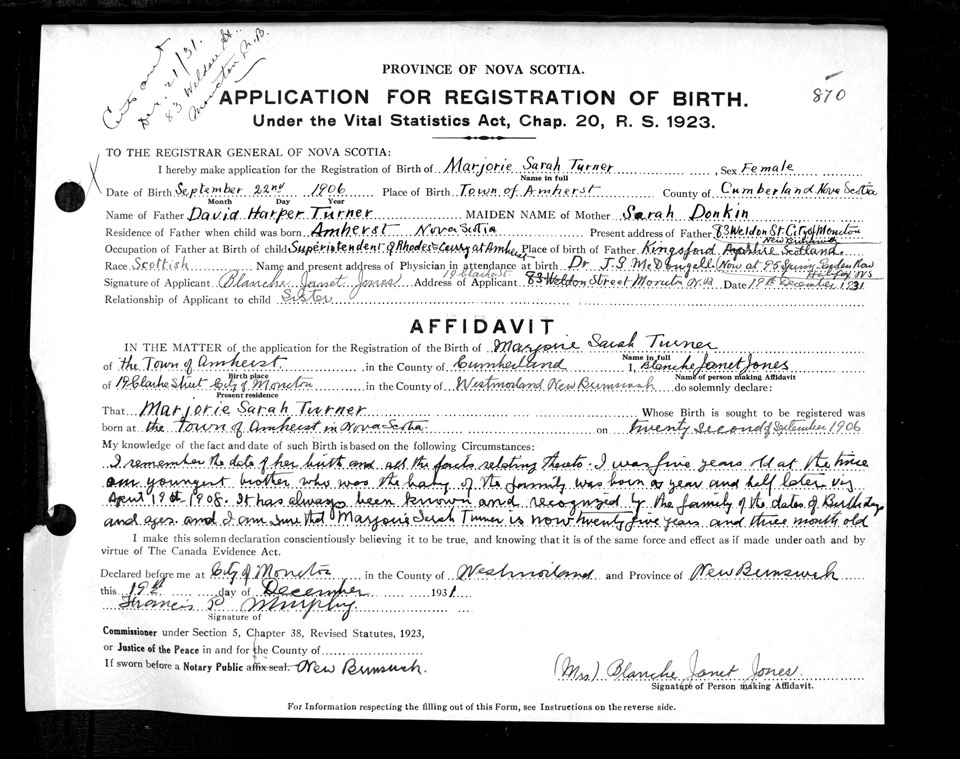 Certs out
Dec. 21/31.
83 Weldon St.
Moncton N.B.
870
PROVINCE OF NOVA SCOTIA.
APPLICATION FOR REGISTRATION OF BIRTH.
Under the Vital Statistics Act, Chap. 20, R. S. 1923.
TO THE REGISTRAR GENERAL OF NOVA SCOTIA:
I hereby make application for the Registration of Birth of Marjorie Sarah Turner, Sex Female
Name in full
Date of Birth September 22nd 1906 Place of Birth Town of Amherst County of Cumberland Nova Scotia
Month Day Year
Name of Father David Harper Turner MAIDEN NAME of Mother Sarah Donkin
Residence of Father when child was born Amherst Nova Scotia Present address of Father 83 Weldon St. City of Moncton
New Brunswick
Occupation of Father at Birth of child Superintendent of Rhodes-Curry at Amherst Place of birth of Father Kingsford Scotland
Race Scottish Name and present address of Physician in attendance at birth Dr. J.S. McDougall (Now at 95 Spring Garden Row
Halifax NS
19 Clarke St
Signature of Applicant Blanche Janet Jones Address of Applicant 83 Weldon Street Moncton N.B. Date 19th December 1931.
Relationship of Applicant to child Sister
AFFIDAVIT
IN THE MATTER of the application for the Registration of the Birth of Marjorie Sarah Turner
Name in full
of the Town of Amherst, in the County of Cumberland I, Blanche Janet Jones
Birth place Name of person making Affidavit
of 19 Clarke Street City of Moncton in the County of Westmorland New Brunswick do solemnly declare:
Present residence
That Marjorie Sarah Turner Whose Birth is sought to be registered was
born at the town of Amherst in Nova Scotia on twenty second of September 1906
My knowledge of the fact and date of such Birth is based on the following Circumstances:
I remember the date of her birth and all the facts relating thereto. I was five years old at the time
our youngest brother who was the baby of the family was born a year and half later viz
April 19th 1908. It has always been known and recognized by the family of the dates of Birthdays
and ages. and I am sure that Marjorie Sarah Turner is now twenty five years and three month old
I make this solemn declaration conscientiously believing it to be true, and knowing that it is of the same force and effect as if made under oath and by
virtue of The Canada Evidence Act.
Declared before me at City of Moncton in the County of Westmorland and Province of New Brunswick
this 19th day of December 1931
Francis P Murphy
Signature of
Commissioner under Section 5, Chapter 38, Revised Statutes, 1923,
or Justice of the Peace in and for the County of
If sworn before a Notary Public affix seal. New Brunswick.
(Mrs) Blanche Janet Jones.
Signature of Person making Affidavit.
For Information respecting the filling out of this Form, see Instructions on the reverse side.